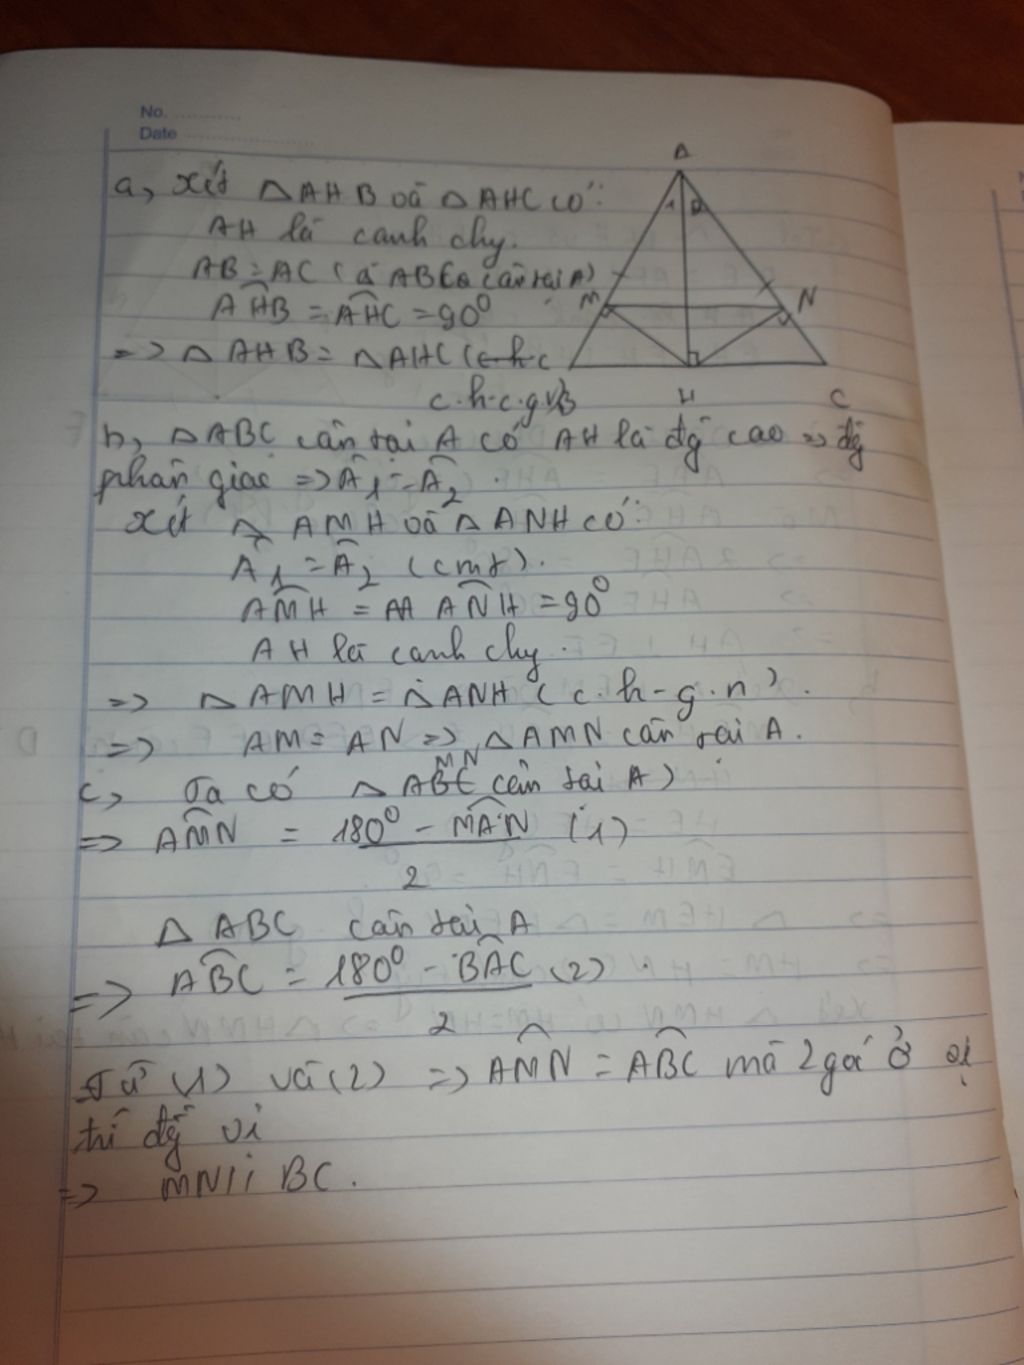 No.
Date
a, xét △AHB và △AHC có:
AH là cạnh chy.
AB = AC (△ ABC cân tại A)
AHB = AHC = 90⁰
=> △AHB = △AHC (c-h-c
c.h-c.g.v)
A
1 2
M N
B H C
b, △ABC cân tại A có AH là đg cao => đg
phân giác => Â₁ = Â₂.
xét △ AMH và △ ANH có:
Â₁ = Â₂ (cmt).
AMH = ANH = 90⁰
AH là cạnh chy.
=> △AMH = △ANH (c.h-g.n).
=> AM = AN => △AMN cân tại A.
c, Ta có △ AMN cân tại A)
=> AMN = 180⁰ - MAN (1)
2
△ ABC cân tại A
=> ABC = 180⁰ - BAC (2)
2
Từ (1) và (2) => AMN = ABC mà 2 góc ở vị
trí đg vị
=> MN // BC.